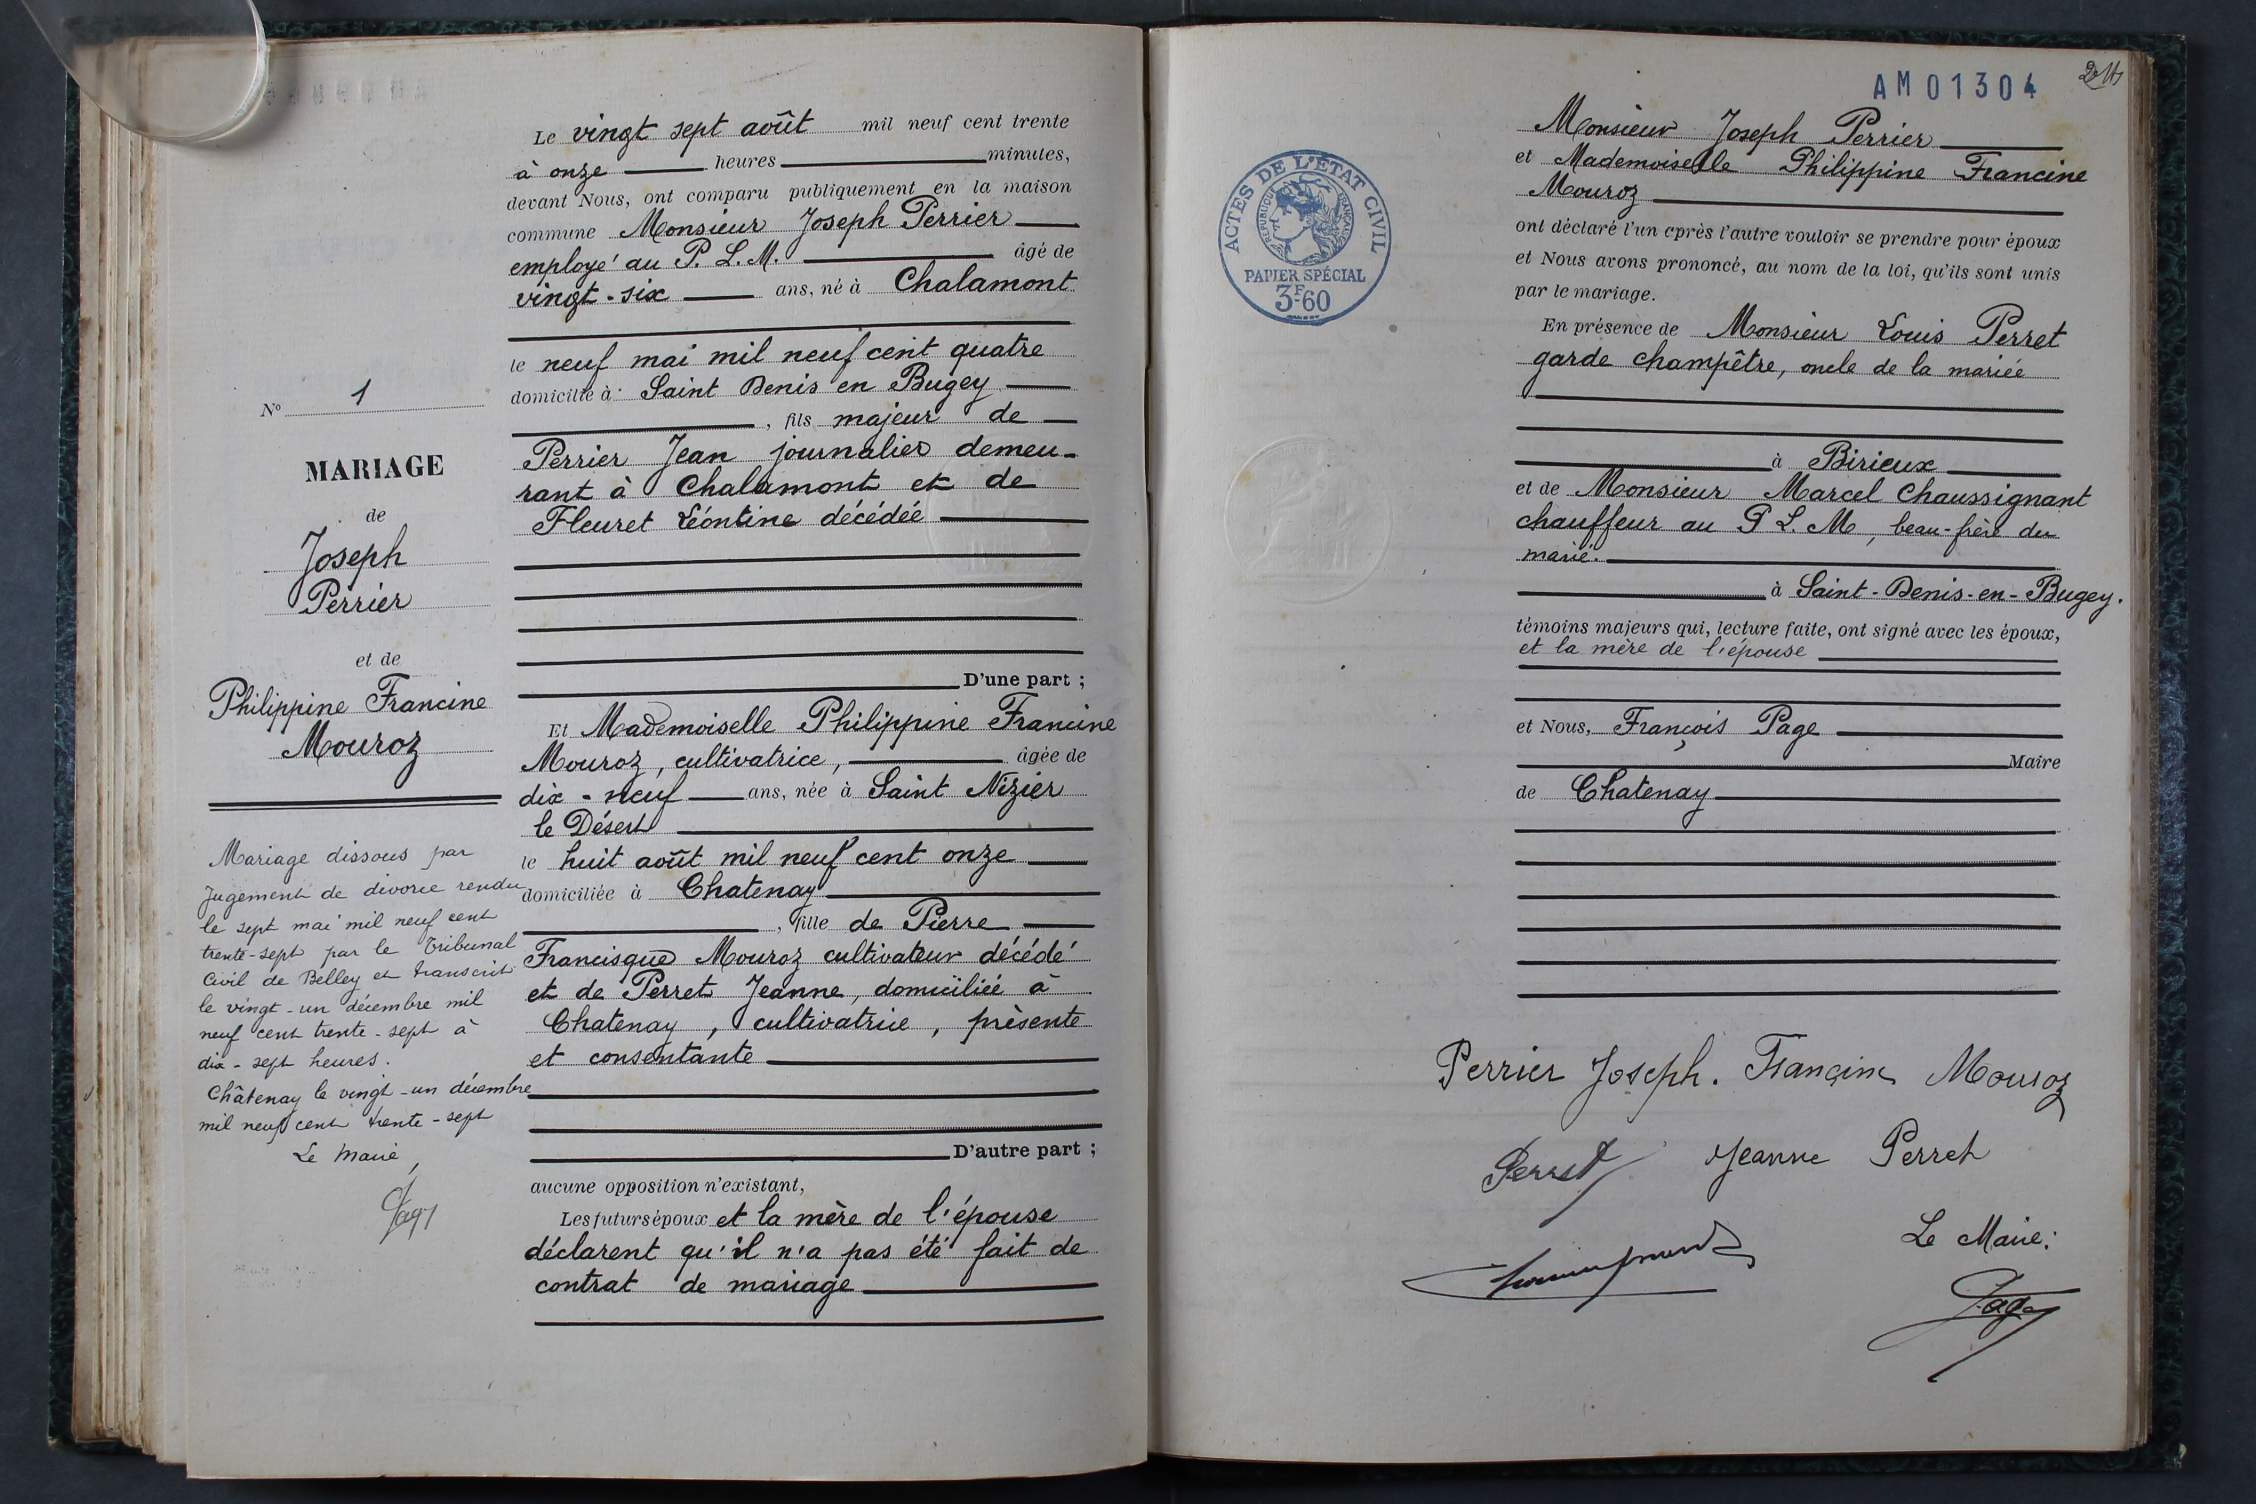 Le vingt sept août mil neuf cent trente
à onze heures minutes,
devant Nous, ont comparu publiquement en la maison
commune Monsieur Joseph Perrier
employé au P. L. M. âgé de
vingt-six ans, né à Chalamont
le neuf mai mil neuf cent quatre
domicilié à Saint Denis en Bugey
, fils majeur de
Perrier Jean journalier demeu-
rant à Chalamont et de
Fleuret Léontine décédée
D'une part ;
Et Mademoiselle Philippine Francine
Mouroz, cultivatrice, âgée de
dix-neuf ans, née à Saint Nizier
le Désert
le huit août mil neuf cent onze
domiciliée à Chatenay
, fille de Pierre
Francisque Mouroz cultivateur décédé
et de Perret Jeanne, domiciliée à
Chatenay, cultivatrice, présente
et consentante
D'autre part ;
aucune opposition n'existant,
Les futurs époux et la mère de l'épouse
déclarent qu'il n'a pas été fait de
contrat de mariage
N° 1
MARIAGE
de
Joseph
Perrier
et de
Philippine Francine
Mouroz
Mariage dissous par
Jugement de divorce rendu
le sept mai mil neuf cent
trente-sept par le Tribunal
Civil de Belley et transcrit
le vingt-un décembre mil
neuf cent trente-sept à
dix-sept heures.
Châtenay le vingt-un décembre
mil neuf cent trente-sept
Le Maire,
Page
AM01304
ACTES DE L'ÉTAT CIVIL
RÉPUBLIQUE FRANÇAISE
PAPIER SPÉCIAL
3F.60
Monsieur Joseph Perrier
et Mademoiselle Philippine Francine
Mouroz
ont déclaré l'un après l'autre vouloir se prendre pour époux
et Nous avons prononcé, au nom de la loi, qu'ils sont unis
par le mariage.
En présence de Monsieur Louis Perret
garde champêtre, oncle de la mariée
à Birieux
et de Monsieur Marcel Chaussignant
chauffeur au P L. M, beau-frère du
marié.
à Saint-Denis-en-Bugey.
témoins majeurs qui, lecture faite, ont signé avec les époux,
et la mère de l'épouse
et Nous, François Page
Maire
de Chatenay
Perrier Joseph. Françine Mouroz
Perret Jeanne Perret
Le Maire:
Page